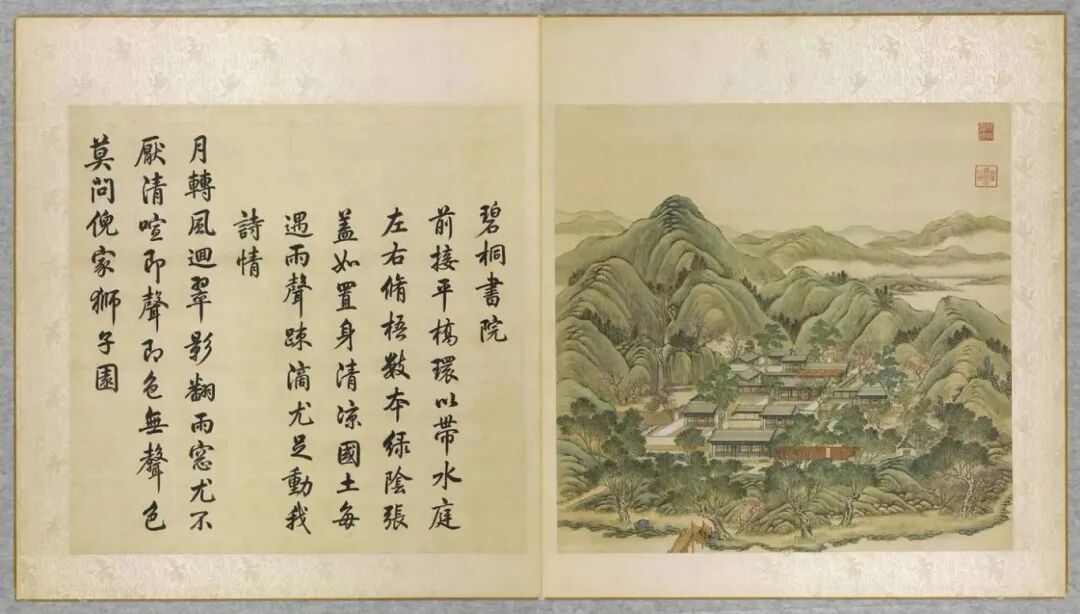 碧桐書院
前接平橋環以帶水庭
左右脩梧數本綠陰張
蓋如置身清凉國土每
遇雨聲踈滴尤足動我
詩情
月轉風迴翠影翻雨窓尤不
厭清喧即聲即色無聲色
莫問倪家獅子園